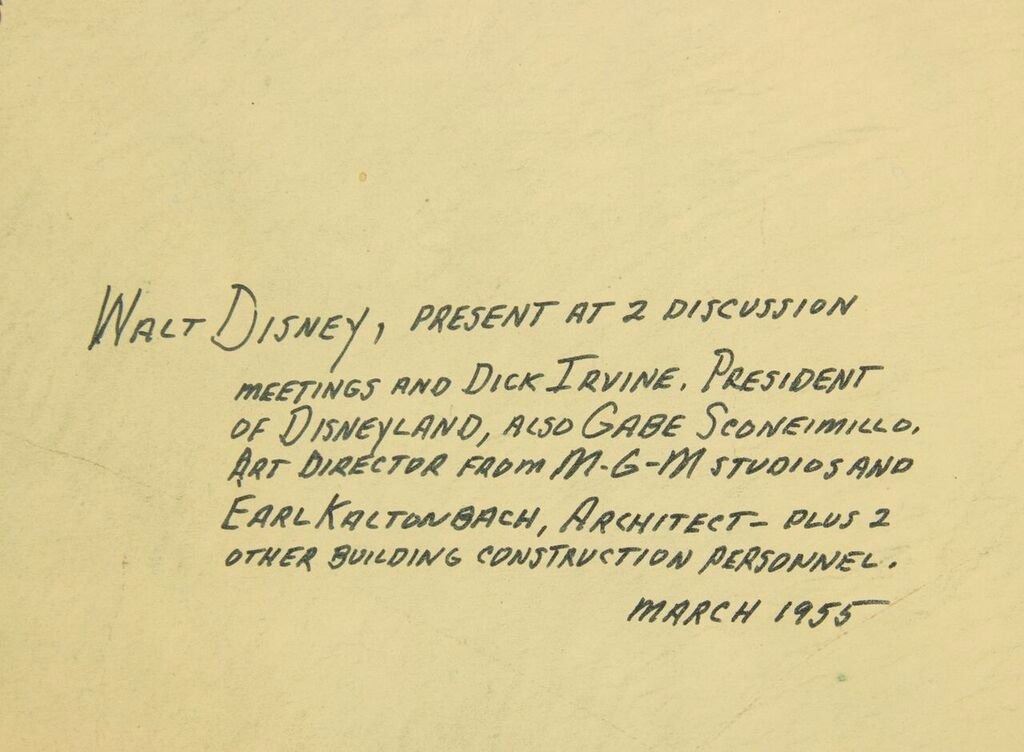 Walt Disney, present at 2 discussion
meetings and Dick Irvine. President
of Disneyland, also Gabe Sconeimillo.
Art Director from M-G-M studios and
Earl Kaltonbach, Architect- plus 2
other building construction personnel.
March 1955